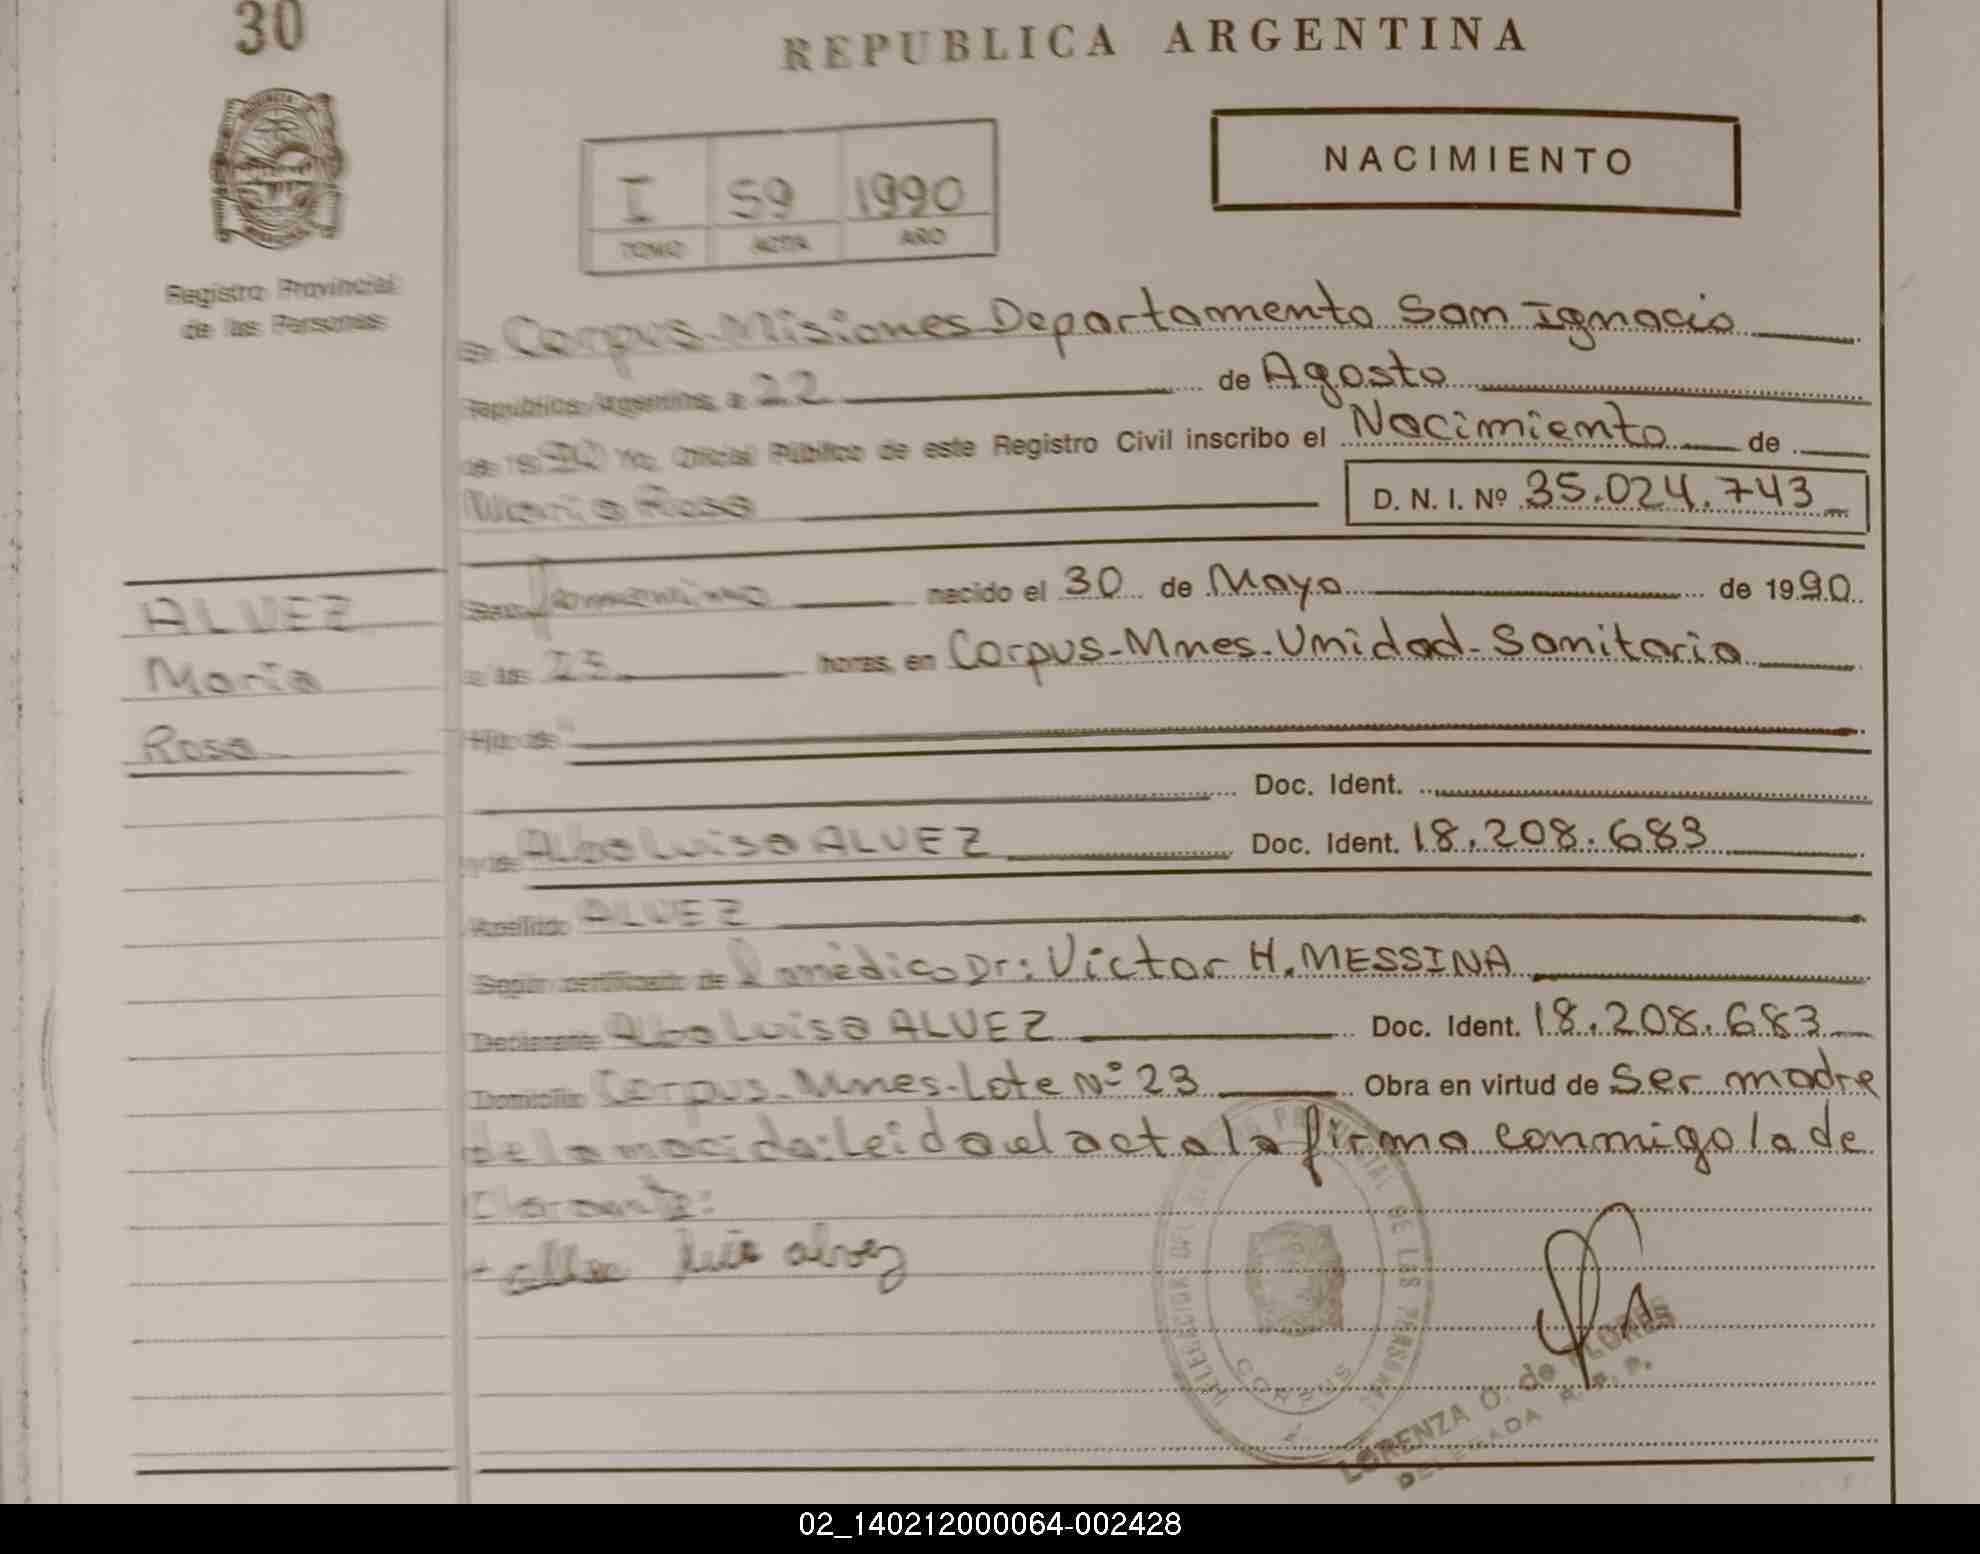 30
REPUBLICA ARGENTINA
NACIMIENTO
I 59 1990
TOMO ACTA AÑO
Registro Provincial
de las Personas
En Corpus-Misiones Departamento San Ignacio
República Argentina, a 22 de Agosto
de 1990 Yo, Oficial Público de este Registro Civil inscribo el Nacimiento de
Maria Rosa D. N. I. Nº 35.024.743
ALVEZ
Maria
Rosa
Sexo femenino nacido el 30 de Mayo de 1990
a las 23 horas, en Corpus-Mnes-Unidad-Sanitaria
Hijo de
Doc. Ident.
y de Alba Luisa ALVEZ Doc. Ident. 18.208.683
Apellido ALVEZ
Según certificado de l médico Dr: Victor H. MESSINA
Declarante Alba Luisa ALVEZ Doc. Ident. 18.208.683
Domicilio Corpus-Mnes-Lote Nº 23 Obra en virtud de Ser madre
de la nacida: Leida el acta la firma conmigo la de
clarante:
luisa alvez
DELEGACION DEL REGISTRO PROVINCIAL DE LAS PERSONAS
CORPUS
LORENZA O. de FLORES
DELEGADA R. P. P.
02_140212000064-002428